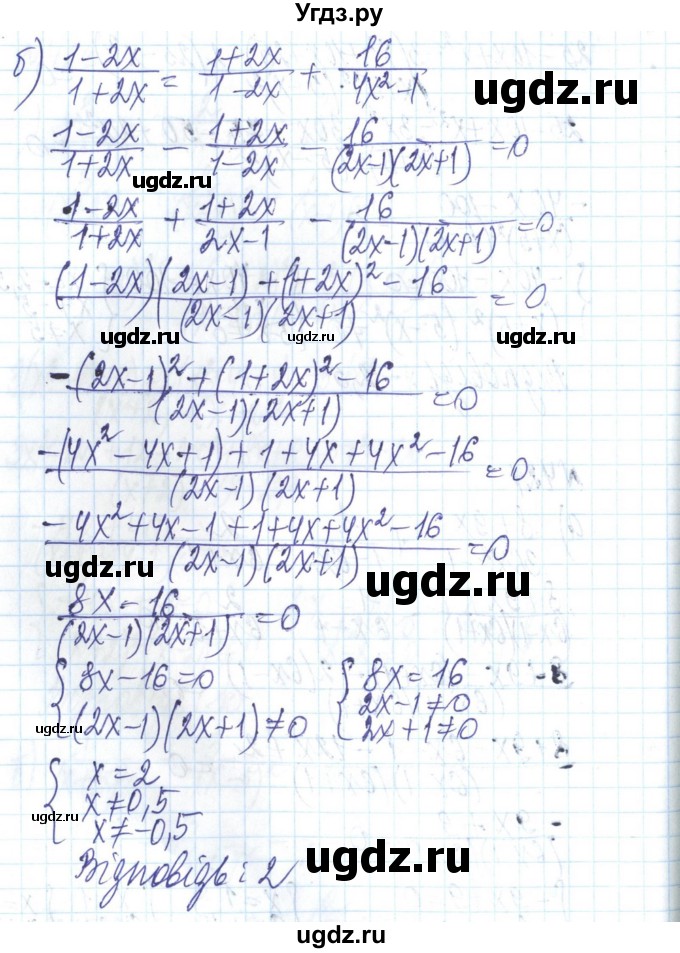 Угдз.ру
б) (1-2x)/(1+2x) = (1+2x)/(1-2x) + 16/(4x²-1)
(1-2x)/(1+2x) - (1+2x)/(1-2x) - 16/((2x-1)(2x+1)) = 0
ugdz.ru ugdz.ru
(1-2x)/(1+2x) + (1+2x)/(2x-1) - 16/((2x-1)(2x+1)) = 0
ugdz.ru ugdz.ru
((1-2x)(2x-1)+(1+2x)²-16)/((2x-1)(2x+1)) = 0
ugdz.ru ugdz.ru
(-(2x-1)²+(1+2x)²-16)/((2x-1)(2x+1)) = 0
ugdz.ru ugdz.ru
(-(4x²-4x+1)+1+4x+4x²-16)/((2x-1)(2x+1)) = 0
(-4x²+4x-1+1+4x+4x²-16)/((2x-1)(2x+1)) = 0
ugdz.ru ugdz.ru
(8x-16)/((2x-1)(2x+1)) = 0
{ 8x-16=0 { 8x=16
(2x-1)(2x+1)≠0 2x-1≠0
2x+1≠0
ugdz.ru
{ x=2
x≠0,5
x≠-0,5
ugdz.ru
Відповідь: 2
ugdz.ru
ugdz.ru